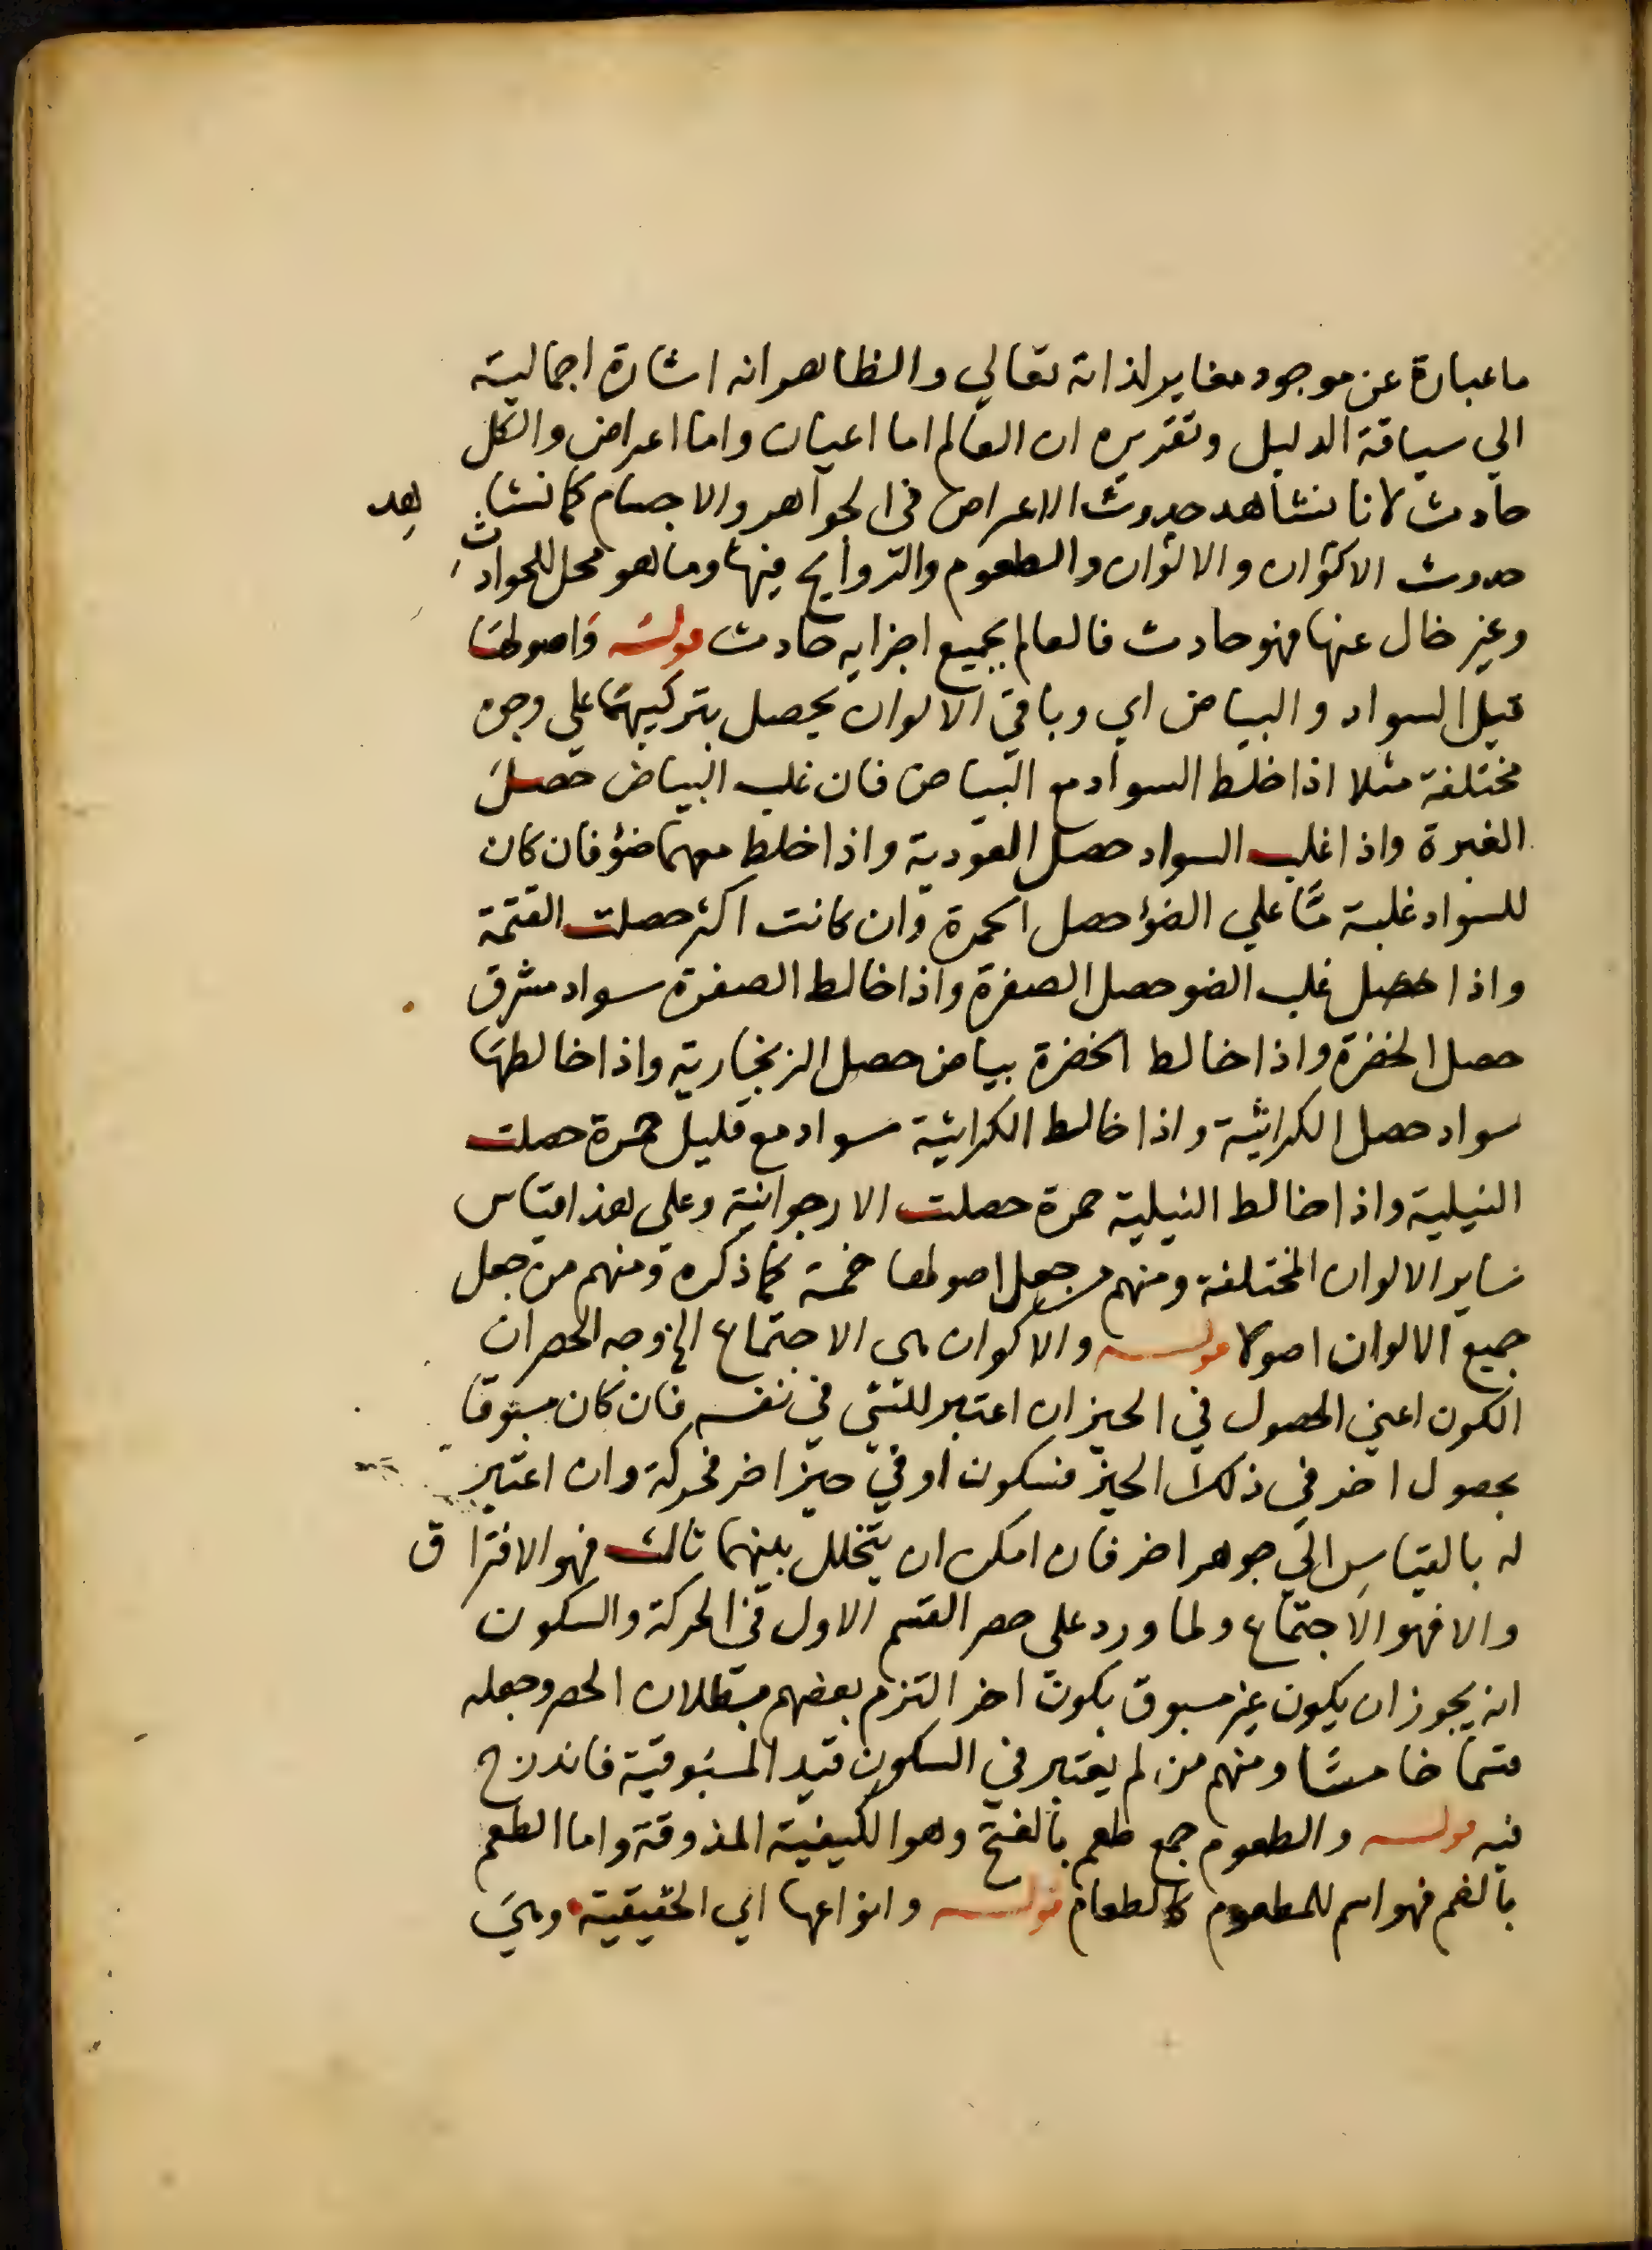 ما عبارة عن موجود مغاير لذاته تعالي والظاهر انه اشارة اجمالية
الي سياقة الدليل وتقريره ان العالم اما اعيان واما اعراض والكل
حادث لانا نشاهد حدوث الاعراض في الجواهر والاجسام كما نشاهد
حدوث الاكوان والالوان والطعوم والروايح فيها وما هو محل للحوادث
وغير خال عنها فهو حادث فالعالم بجميع اجزايه حادث قوله واصولها
قيل السواد والبياض اي وباقي الالوان يحصل بتركيبهما علي وجوه
مختلفة مثلا اذا خلط السواد مع البياض فان غلب البياض حصل
الغبرة واذا غلب السواد حصل العودية واذا خلط معهما ضوء فان كان
للسواد غلبة ما علي الضوء حصل الحمرة وان كانت اكثر حصلت القتمة
واذا حصل غلب الضو حصل الصفرة واذا خالط الصفرة سواد مشرق
حصل الخضرة واذا خالط الخضرة بياض حصل الزنجارية واذا خالطها
سواد حصل الكراثية واذا خالط الكراثية سواد مع قليل حمرة حصلت
النيلية واذا خالط النيلية حمرة حصلت الارجوانية وعلي هذا قياس
ساير الالوان المختلفة ومنهم من جعل اصولها خمسة كما ذكره ومنهم من جعل
جميع الالوان اصولا قوله والاكوان هي الاجتماع الخ وجه الحصر ان
الكون اعني الحصول في الحيز ان اعتبر للشي في نفسه فان كان مسبوقا
بحصول اخر في ذلك الحيز فسكون او في حيز اخر فحركة وان اعتبر
له بالقياس الي جوهر اخر فان امكن ان يتخلل بينهما ثالث فهو الافتراق
والا فهو الاجتماع ولما ورد علي حصر القسم الاول في الحركة والسكون
انه يجوز ان يكون غير مسبوق بكون اخر التزم بعضهم ببطلان الحصر وجعله
قسما خامسا ومنهم من لم يعتبر في السكون قيد المسبوقية فاندرج
فيه قوله والطعوم جمع طعم بالفتح وهو الكيفية المذوقة واما الطعم
بالضم فهو اسم للمطعوم كالطعام قوله وانواعها اي الحقيقية وهي